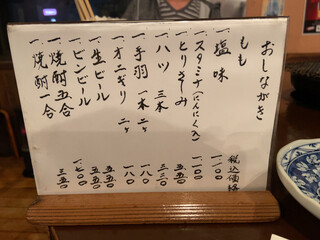 おしながき
もも 税込価格
一、塩味 一、一〇〇
一、スタミナ(にんにく入) 一、一〇〇
一、とりさしみ 五五〇
一、ハツ 三本 三三〇
一、手羽 一本 二ヶ 一八〇
一、オニギリ 二ヶ 一八〇
一、生ビール 五五〇
一、ビンビール 五五〇
一、焼酎五合 一、七〇〇
一、焼酎一合 三五〇